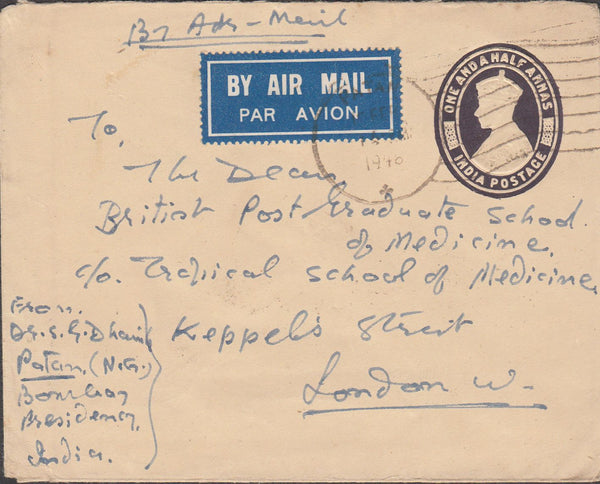 By Air-Mail
BY AIR MAIL
PAR AVION
ONE AND A HALF ANNAS
INDIA POSTAGE
1946
To,
The Dean,
British Post Graduate School
of Medicine,
c/o. Tropical School of Medicine,
Keppel's Street
London W-
From.
Dr. S. G.
Patan, (N.G.)
Bombay
Presidency,
India.